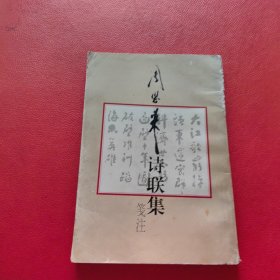 周恩来诗联集
笺注
大江歌罷掉
頭東邃密群
科濟世窮面
壁十年圖
破壁難酬蹈
海亦英雄